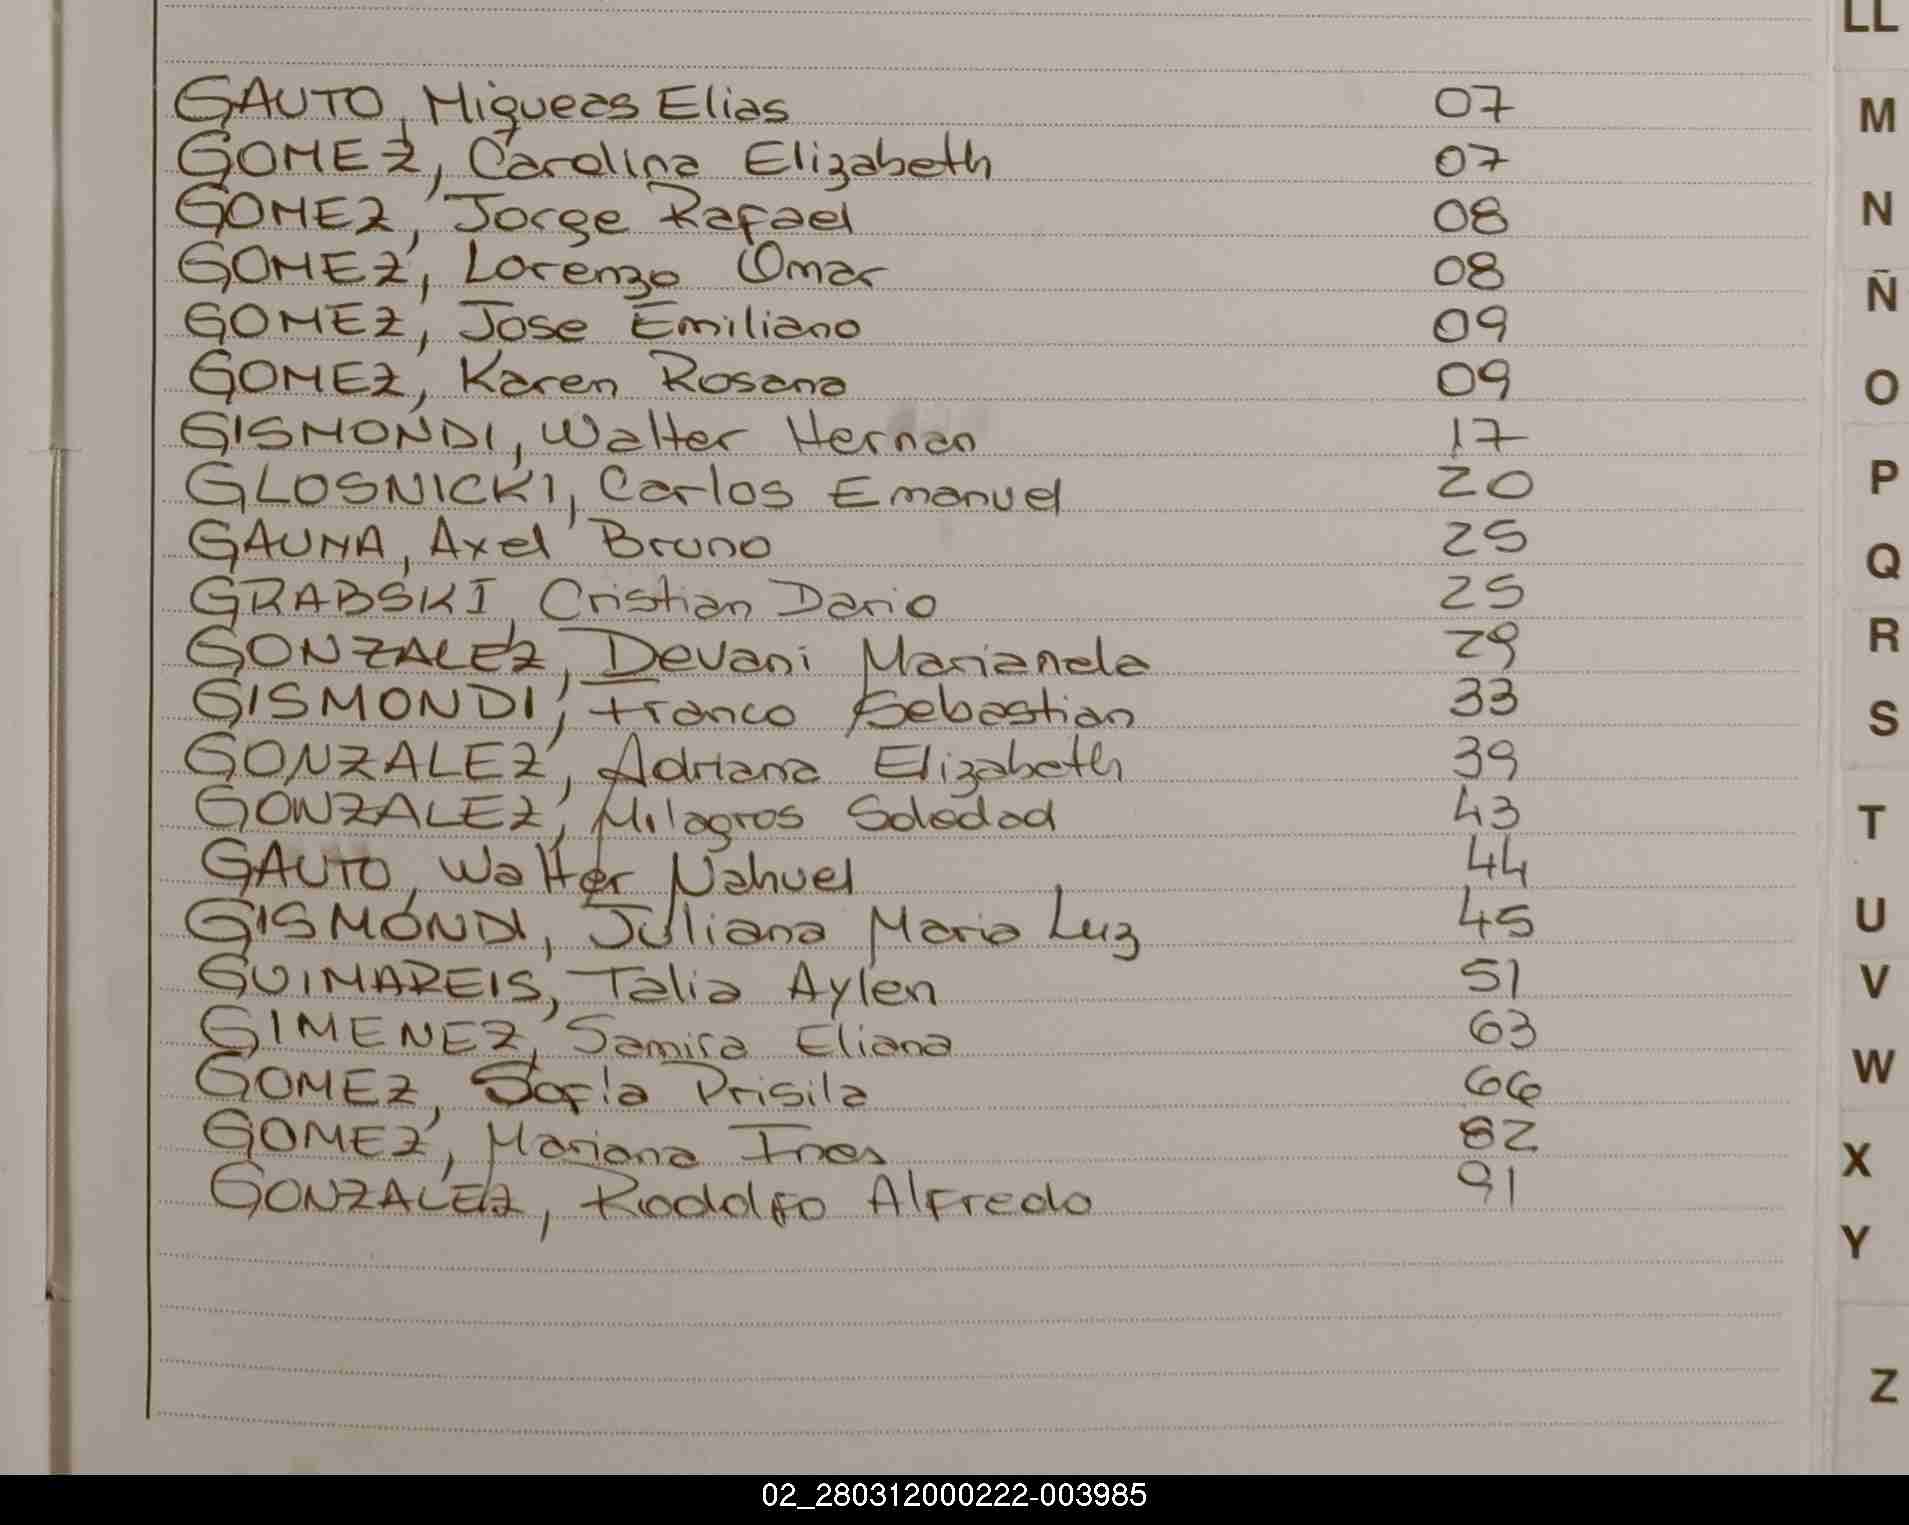 LL
GAUTO, Miqueas Elias 07
M
GOMEZ, Carolina Elizabeth 07
GOMEZ, Jorge Rafael 08
N
GOMEZ, Lorenzo Omar 08
Ñ
GOMEZ, Jose Emiliano 09
GOMEZ, Karen Rosana 09
O
GISMONDI, Walter Hernan 17
GLOSNICKI, Carlos Emanuel 20
P
GAUNA, Axel Bruno 25
Q
GRABSKI, Cristian Dario 25
GONZALEZ, Devani Marianela 29
R
GISMONDI, Franco Sebastian 33
S
GONZALEZ, Adriana Elizabeth 39
GONZALEZ, Milagros Soledad 43
T
GAUTO, Walter Nahuel 44
GISMONDI, Juliana Maria Luz 45
U
GUIMAREIS, Talia Aylen 51
V
GIMENEZ, Samira Eliana 63
GOMEZ, Sofia Prisila 66
W
GOMEZ, Mariana Ines 82
X
GONZALEZ, Rodolfo Alfredo 91
Y
Z
02_280312000222-003985